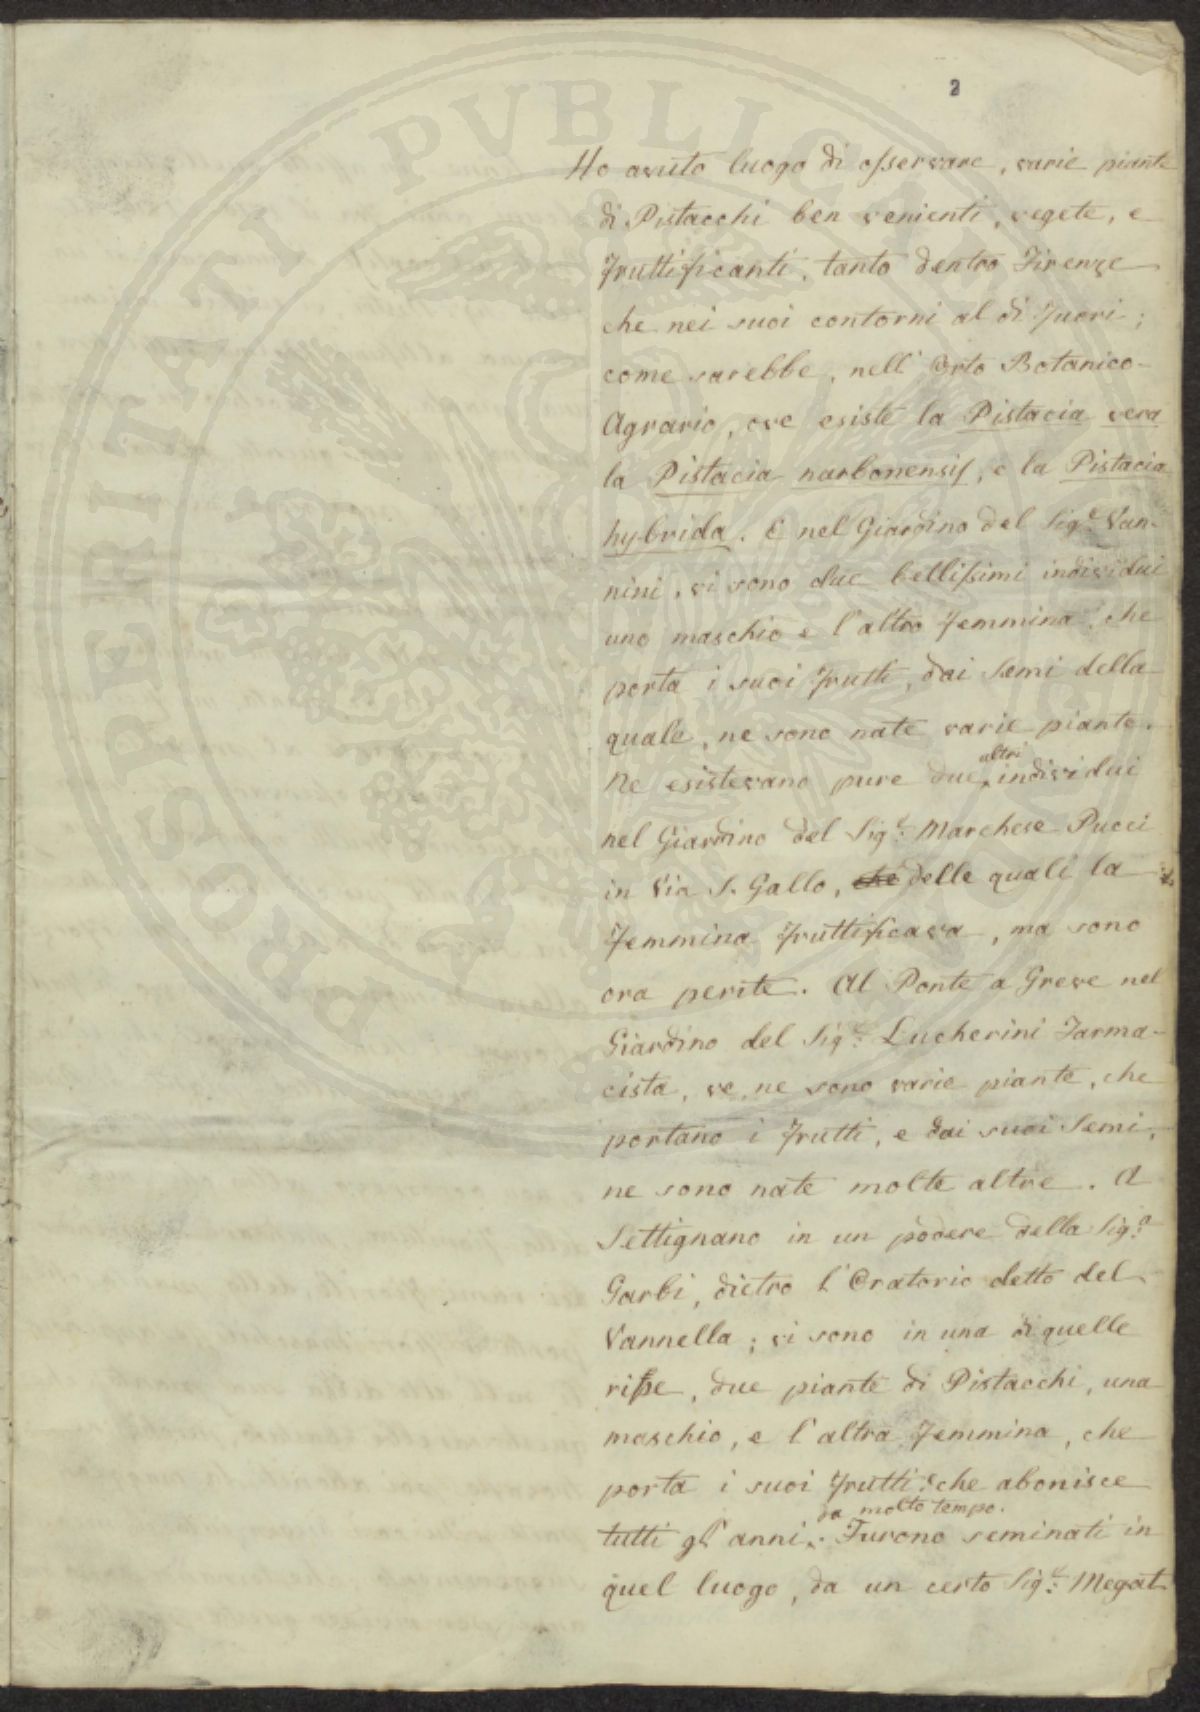 PROSPERITATI PVBLICAE AVGENDAE
2
Ho avuto luogo di osservare, varie piante
di Pistacchi ben venienti, vegete, e
fruttificanti, tanto dentro Firenze
che nei suoi contorni al di fuori;
come sarebbe, nell' Orto Botanico-
Agrario, ove esiste la Pistacia vera
la Pistacia narbonensis, e la Pistacia
hybrida. E nel Giardino del Sig.e Van-
nini, vi sono due bellissimi individui
uno maschio e l'altro femmina, che
porta i suoi frutti, dai semi della
quale, ne sono nate varie piante.
altri
Ne esistevano pure due, individui
nel Giardino del Sig.e Marchese Pucci
in Via S. Gallo, che delle quali la
femmina fruttificava, ma sono
ora perite. Al Ponte a Greve nel
Giardino del Sig.e Lucherini Farma-
cista, ve, ne sono varie piante, che
portano i frutti, e dai suoi semi,
ne sono nate molte altre. A
Settignano in un podere della Sig.a
Garbi, dietro l'Oratorio detto del
Vannella; vi sono in una di quelle
ripe, due piante di Pistacchi, una
maschio, e l'altra femmina, che
porta i suoi frutti: che abonisce
da molto tempo.
tutti gl' anni. Furono seminati in
quel luogo, da un certo Sig.e Megat